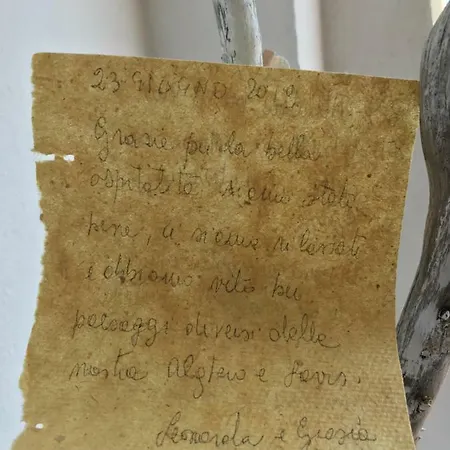 23 GIUGNO 2012
Grazie per la bella
ospitalità siamo stati
bene, ci siamo rilassati
e abbiamo visto bei
paesaggi diversi dalla
nostra Alghero e
Leonarda e Grazia